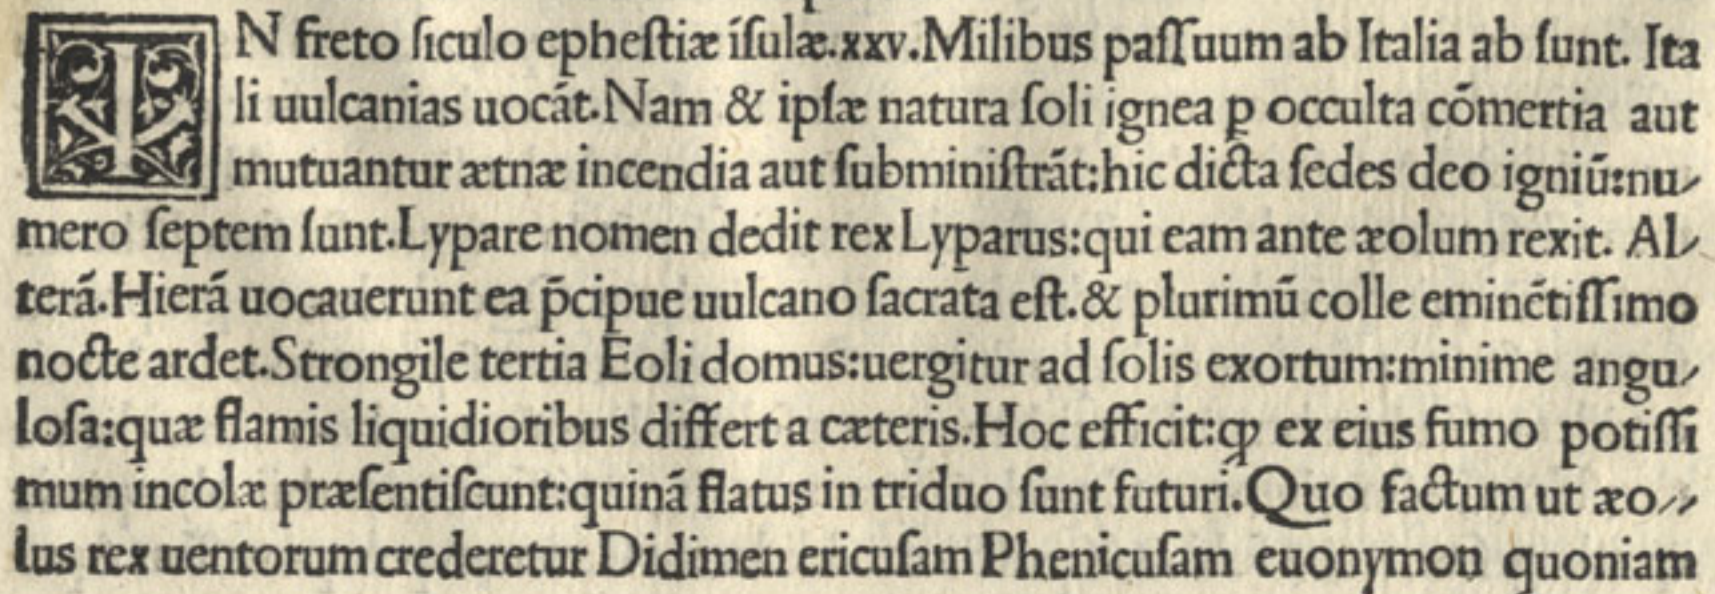 IN freto ſiculo epheſtiæ íſulæ.xxv.Milibus paſſuum ab Italia ab ſunt. Ita
li uulcanias uocãt.Nam & ipſæ natura ſoli ignea ꝑ occulta cõmertia aut
mutuantur ætnæ incendia aut ſubminiſtrãt:hic dicta ſedes deo igniũ:nu-
mero ſeptem ſunt.Lypare nomen dedit rex Lyparus:qui eam ante æolum rexit. Al-
terã.Hierã uocauerunt ea p̃cipue uulcano ſacrata eſt.& plurimũ colle eminẽtiſſimo
nocte ardet.Strongile tertia Eoli domus:uergitur ad ſolis exortum:minime angu-
loſa:quæ flamis liquidioribus differt a cæteris.Hoc efficit:ꝙ ex eius fumo potiſſi
mum incolæ præſentiſcunt:quinã flatus in triduo ſunt futuri.Quo factum ut æo-
lus rex uentorum crederetur Didimen ericuſam Phenicuſam euonymon quoniam